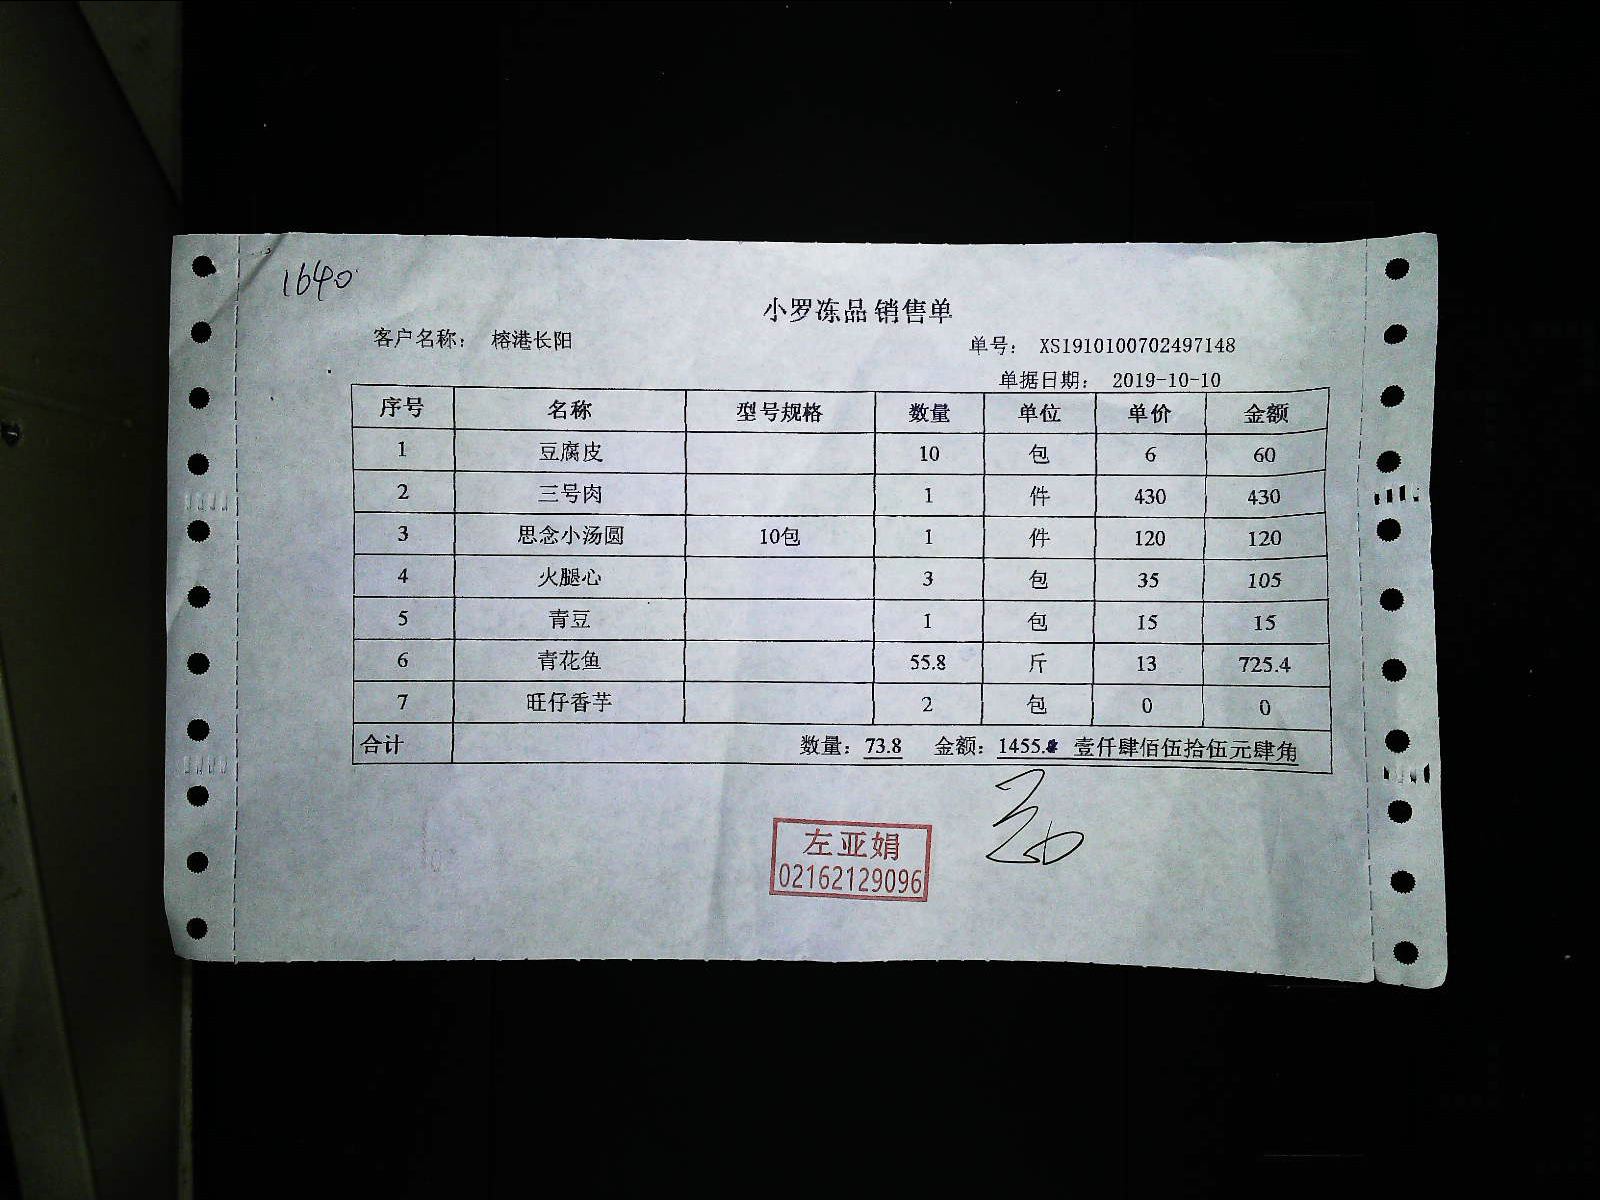 1640
小罗冻品 销售单
客户名称： 榕港长阳 单号： XS1910100702497148
单据日期： 2019-10-10
序号 名称 型号规格 数量 单位 单价 金额
1 豆腐皮 10 包 6 60
2 三号肉 1 件 430 430
3 思念小汤圆 10包 1 件 120 120
4 火腿心 3 包 35 105
5 青豆 1 包 15 15
6 青花鱼 55.8 斤 13 725.4
7 旺仔香芋 2 包 0 0
合计 数量：73.8 金额：1455. 壹仟肆佰伍拾伍元肆角
左亚娟
02162129096